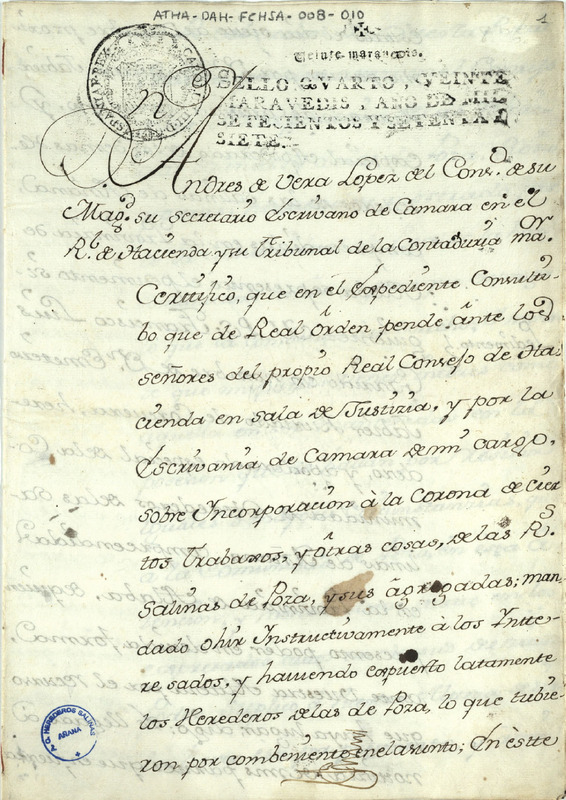 ATHA-DAH-FCHSA-008-010
1
Veinte maravedis.
SELLO QVARTO, VEINTE
MARAVEDIS, AÑO DE MIL
SETECIENTOS Y SETENTA Y
SIETE.
Andres de Vera Lopez del Cons.º de su
Mag.d su secretario Escrivano de Camara en el
R.l de Hacienda y su Tribunal de la Contaduria ma.or
Certifico, que en el Expediente Consulti-
bo que de Real órden pende ânte los
señores del propio Real Consejo de Ha-
cienda en sala de Justizia, y por la
Escrivania de Camara de mi cargo,
sobre Yncorporación à la Corona de Cier-
tos Trabaxos, y ôtras cosas, de las R.s
Salinas de Poza, y sus âgregadas; man-
dado ohir Ynstructivamente à los Ynte-
resados, y haviendo expuesto latamente
los Herederos de las de Poza, lo que tubie-
ron por combeniente en el asunto; En estte
C. HEREDEROS SALINAS
AÑANA